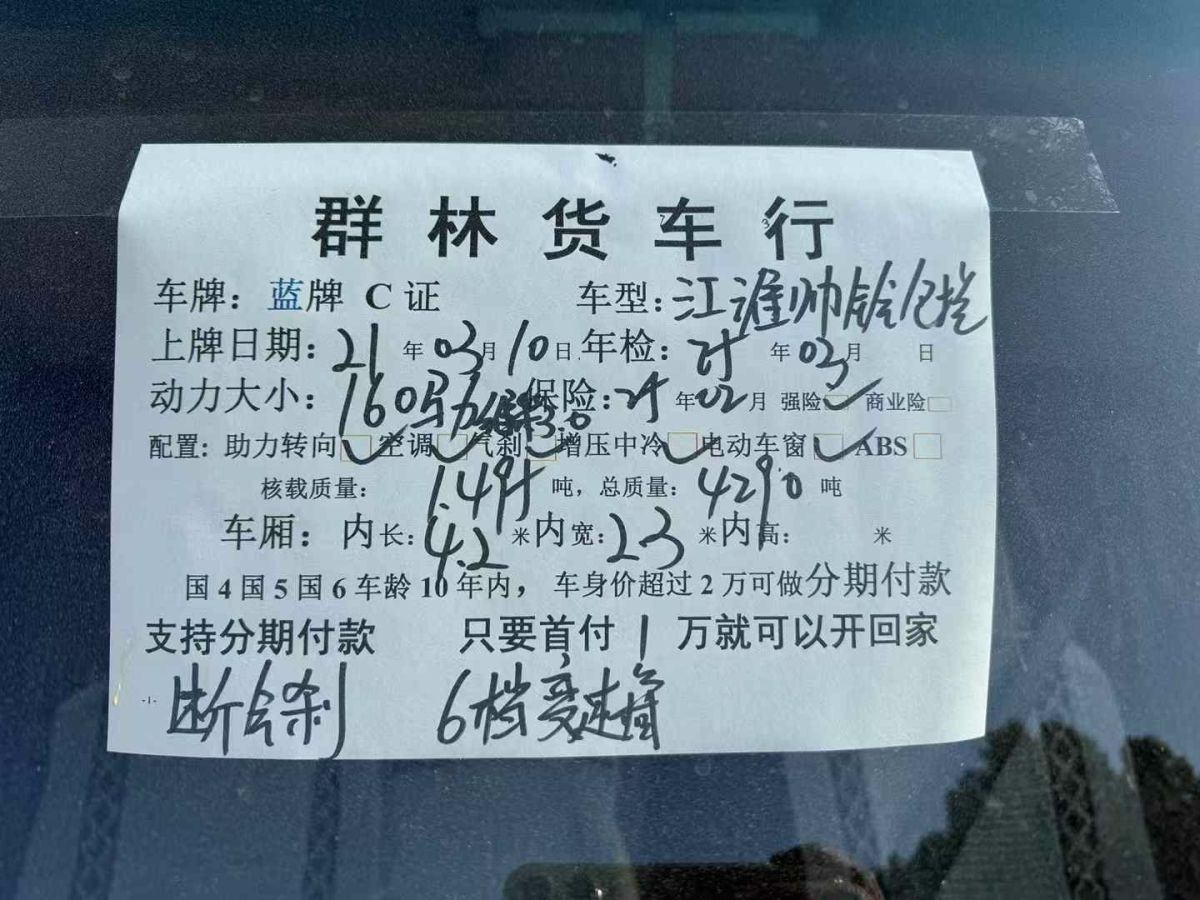 群林货车行
车牌：蓝牌 C 证 车型：江淮帅铃
上牌日期：21 年 03 月 10 日 年检：25 年 03 月 日
动力大小：160马力 3.0 保险：25 年 02 月 强险 商业险
配置：助力转向 空调 气刹 增压中冷 电动车窗 ABS
核载质量：1.495 吨，总质量：4290 吨
车厢：内长：4.2 米 内宽：2.3 米 内高： 米
国 4 国 5 国 6 车龄 10 年内， 车身价超过 2 万可做分期付款
支持分期付款 只要首付 1 万就可以开回家
-1- 断气刹 6档变速箱